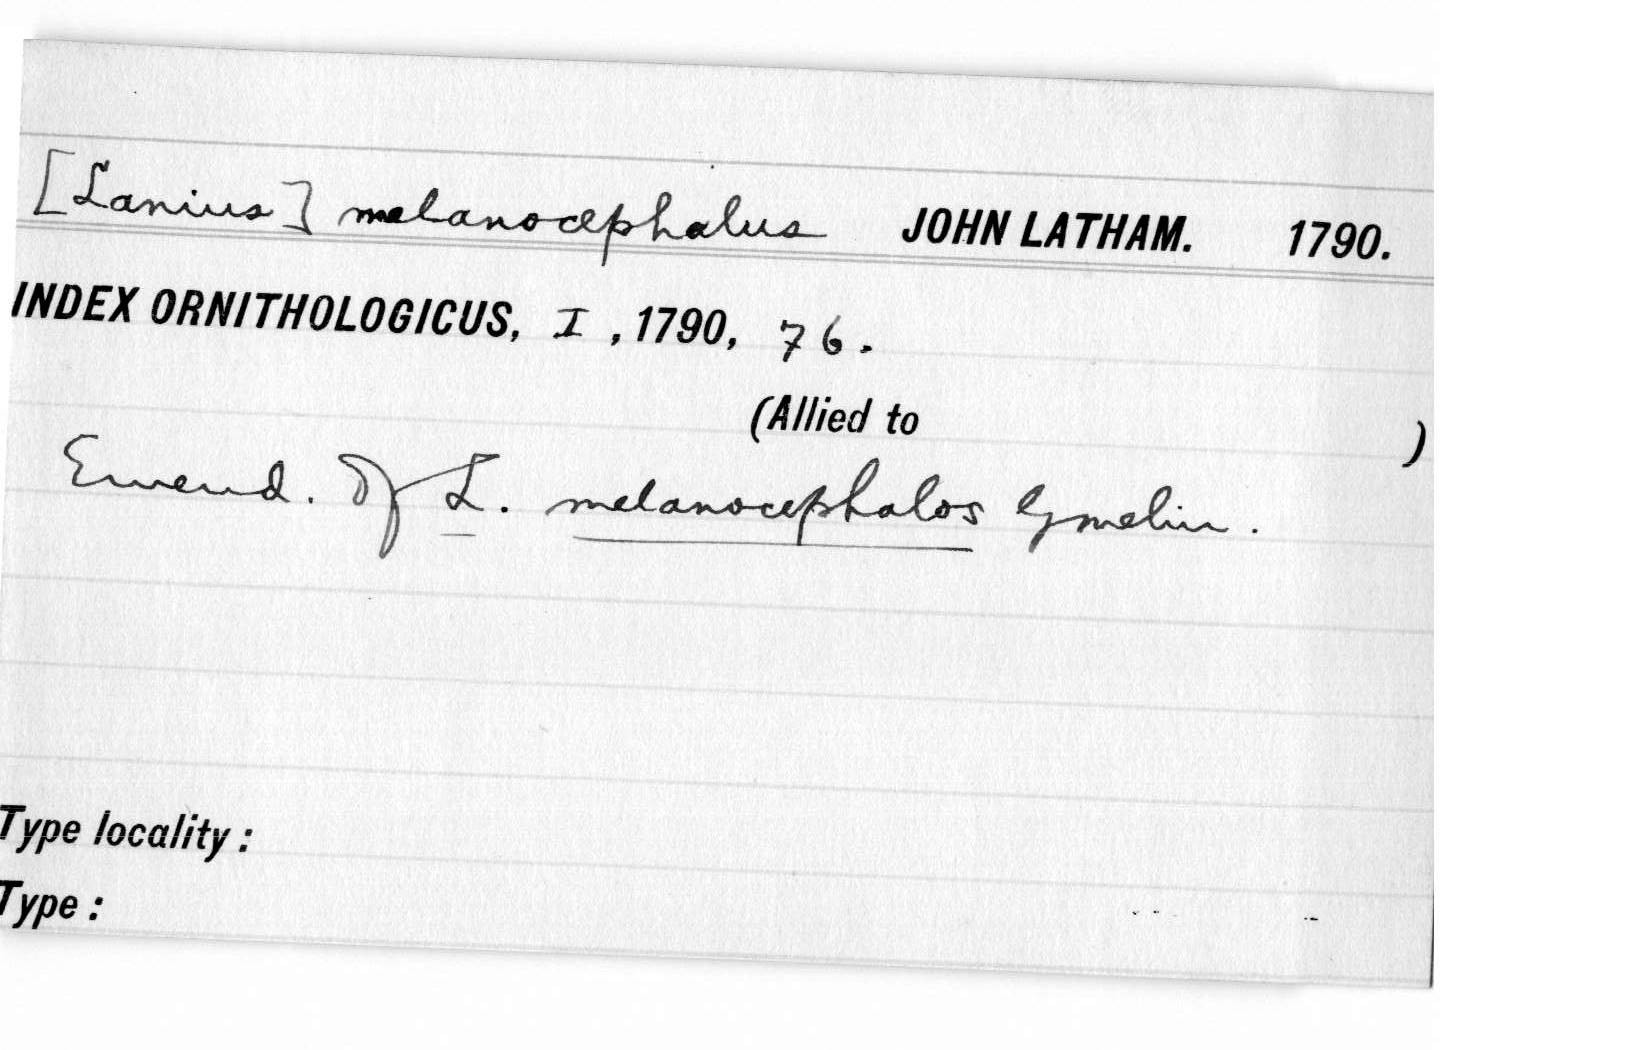 [Lanius] melanocephalus JOHN LATHAM. 1790.
INDEX ORNITHOLOGICUS, I, 1790, 76.
(Allied to )
Emend. of L. melanocephalos Gmelin.
Type locality:
Type: